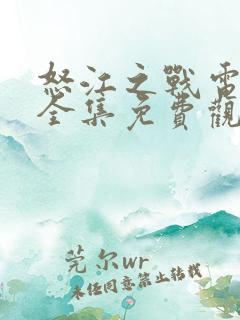 怒江之戰電
全集免費觀
莞尔wr
未经同意禁止转载